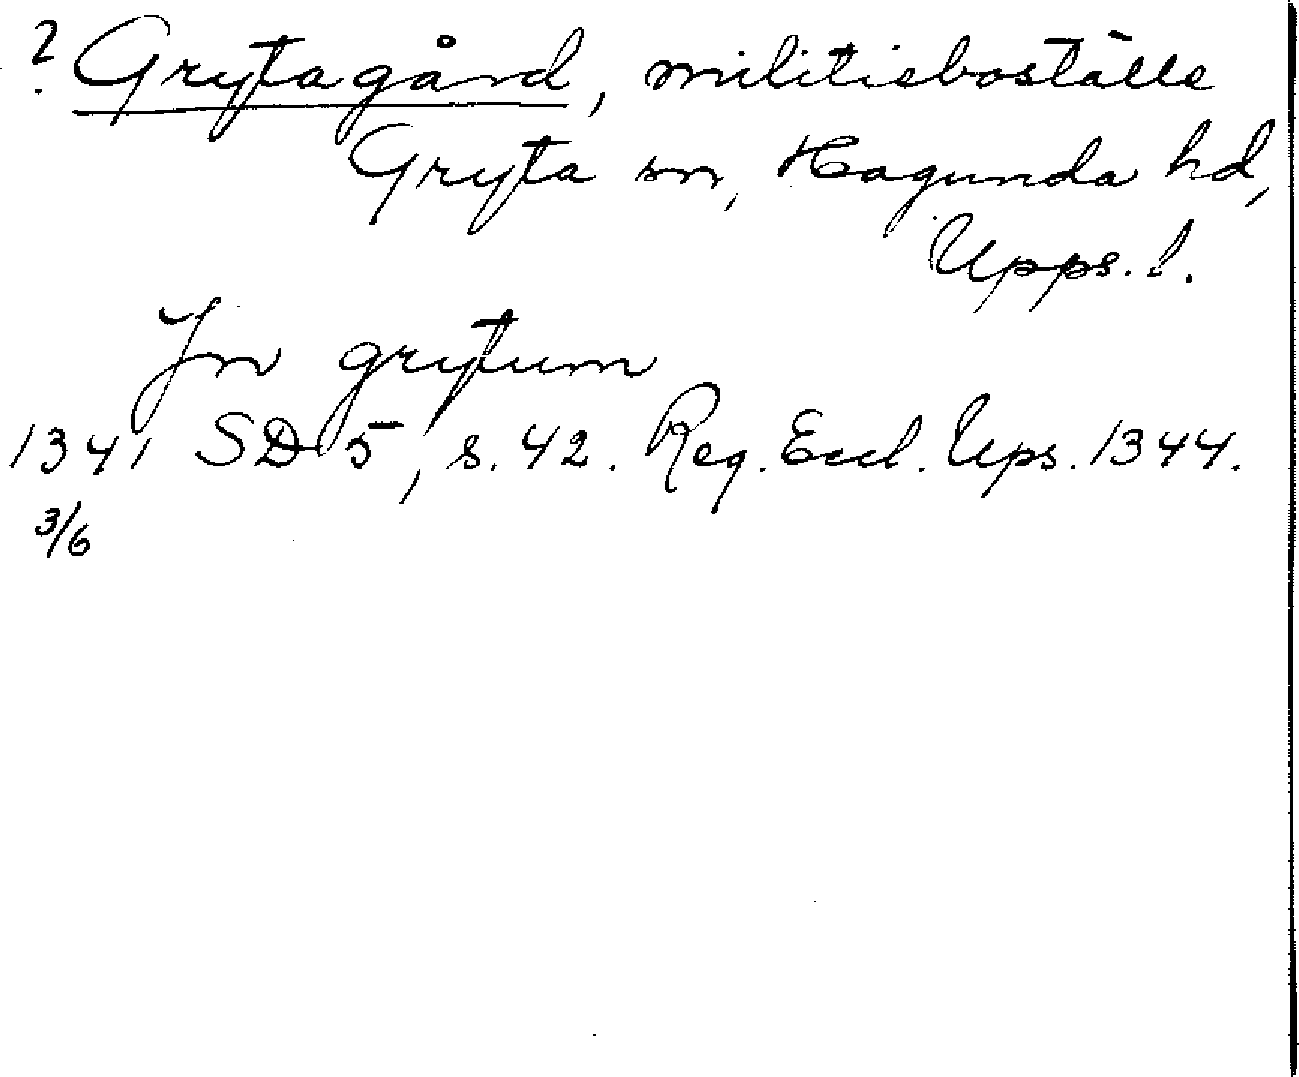 ? Grytagård, militieboställe
Gryta sn, Hagunda hd,
Upps. l.
In grytum
1341 SD 5, s. 42. Reg. Eccl. Ups. 1344.
3/6